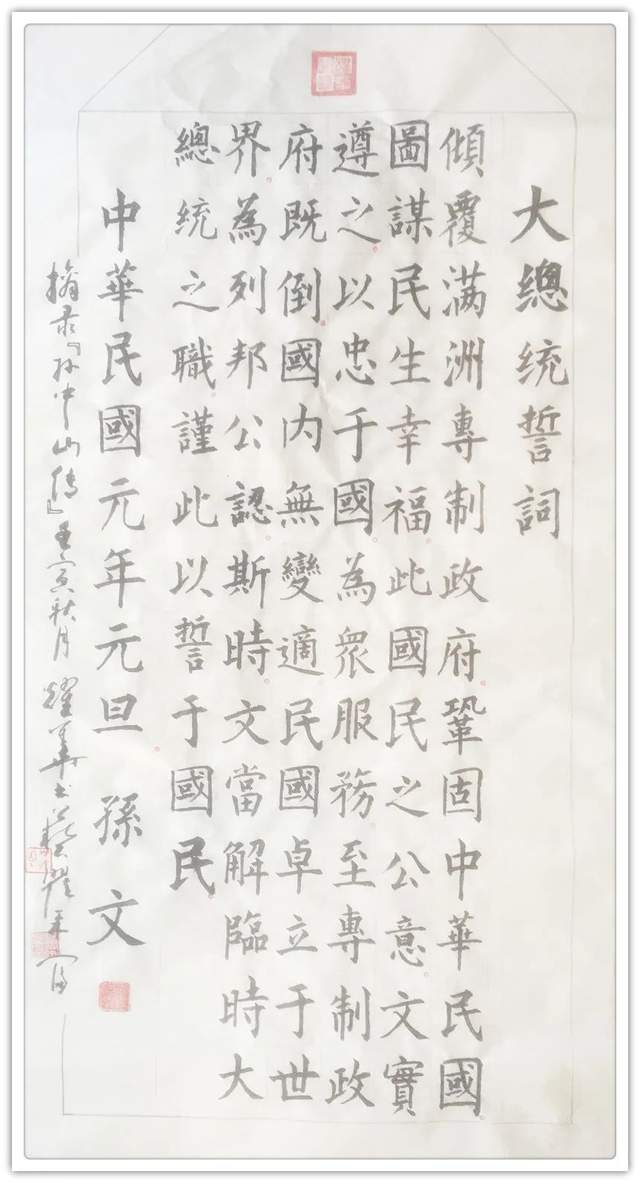 大總统誓詞
傾覆满洲專制政府鞏固中華民國
圖謀民生幸福此國民之公意文實
遵之以忠于國為衆服務至專制政
府既倒國内無變適民國卓立于世
界為列邦公認斯時文當解臨時大
總统之職謹此以誓于國民
中華民國元年元旦 孫文
摘录『孙中山传』壬寅秋月耀華书